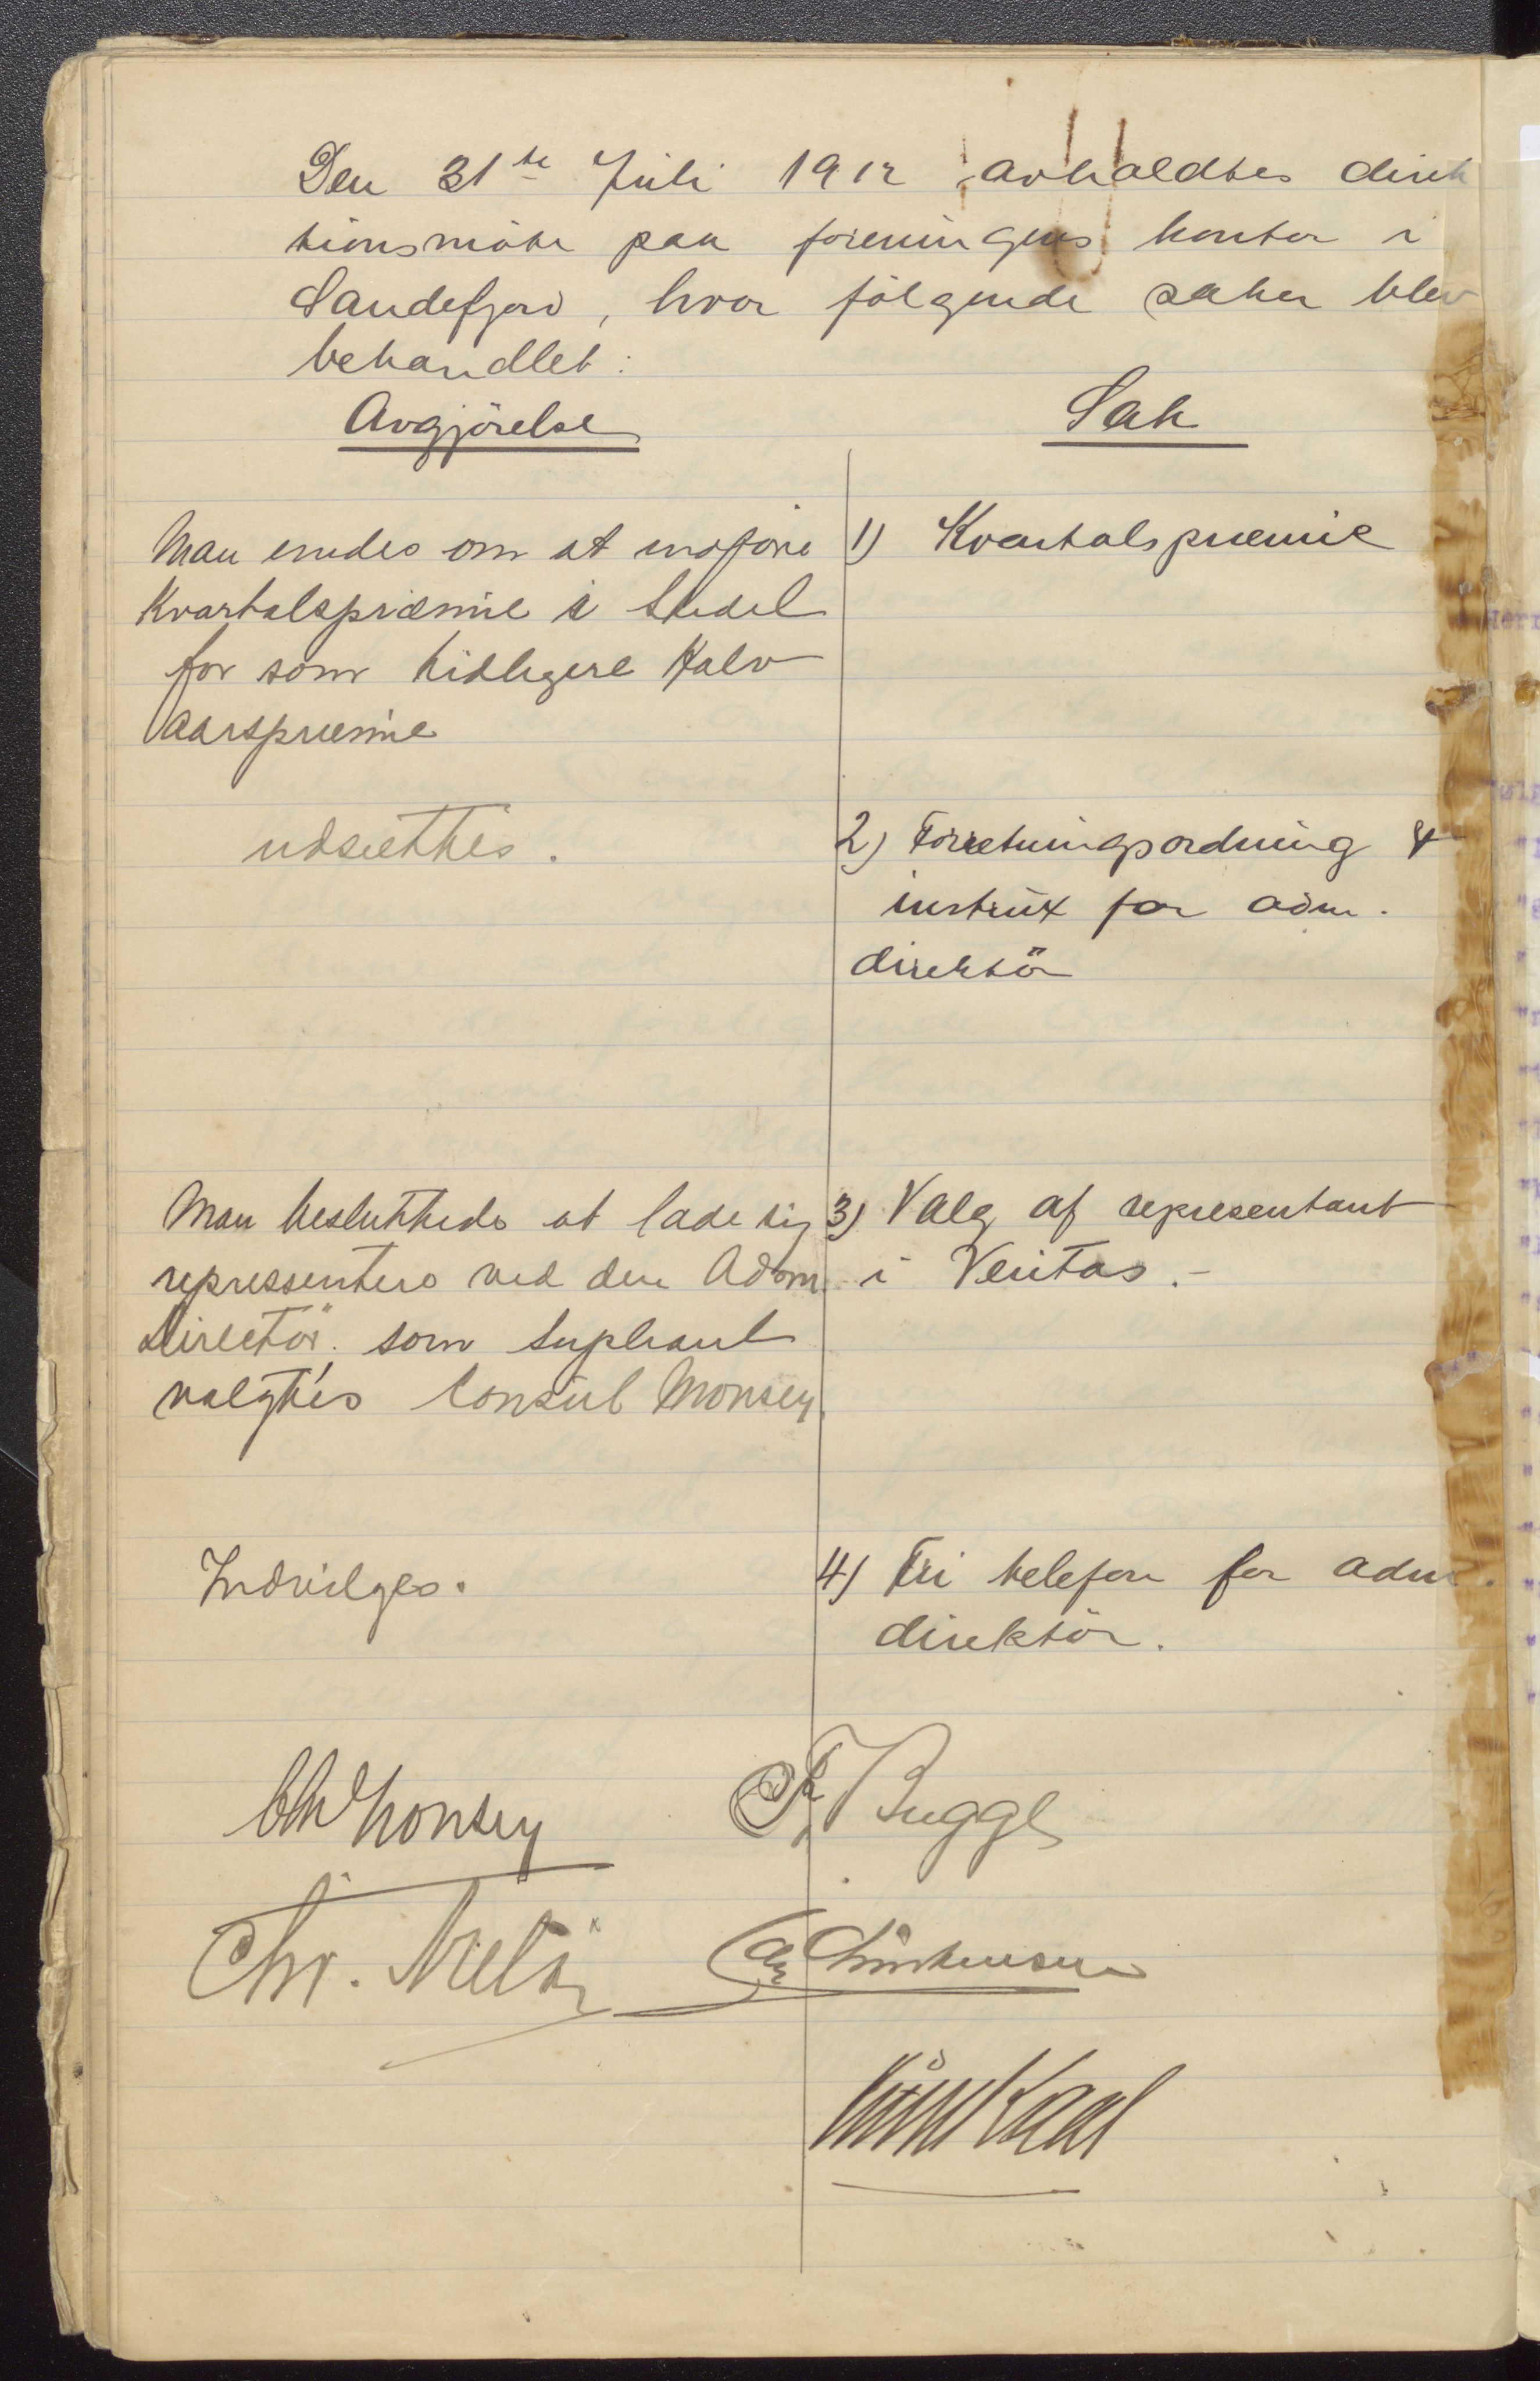 Den 31te Juli 1912 avholdtes direk
tionsmöte paa foreningens kontor i
Sandefjord, hvor følgende saker blev
behandlet:
Avgjörelse
Sak
Man enedes om at indføre
Kvartalspræmie i stedet
for som tidligere Halv
aarspræmie
1) Kvartalspræmie
udsættes.
2) Forretningsordning &
instrux for adm.
direktör
Man besluttede at lade sig
repressentere ved den Adm.
Directör. som supleant
valgtes Consul Monsen.
3) Valg af representant
i Veritas.-
Indvilges.
4) Fri telefon for adm.
direktör.
Monsen
Bugge
Chr. Nielsen
Christensen